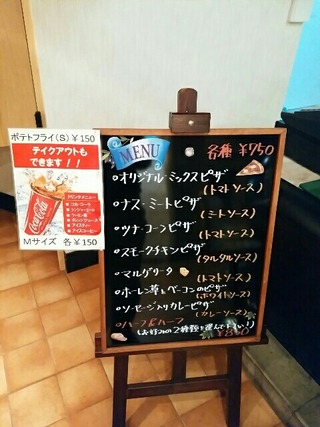 ポテトフライ(S)￥150
テイクアウトも
できます！！
Coca-Cola
ドリンクメニュー
Mサイズ 各￥150
MENU
各種 ￥750
オリジナルミックスピザ
(トマトソース)
ナス・ミートピザ
(ミートソース)
ツナ・コーンピザ
(トマトソース)
スモークチキンピザ
(タルタルソース)
マルゲリータ
(トマトソース)
ホーレン草&ベーコンのピザ
(ホワイトソース)
ソーセージ入りカレーピザ
(カレーソース)
ハーフ&ハーフ
(お好みの2種類を選んで下さい!)